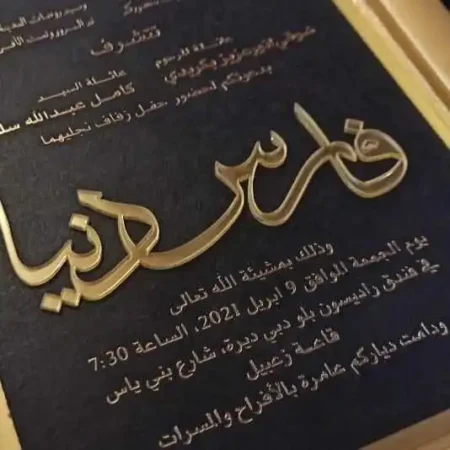 تتشرف
عائلة المرحوم عائلة السيد
كامل عبدالله
بدعوتكم لحضور حفل زفاف نجليهما
فارس دنيا
وذلك بمشيئة الله تعالى
يوم الجمعة الموافق 9 ابريل 2021، الساعة 7:30
في فندق راديسون بلو دبي ديرة، شارع بني ياس
قاعة زعبيل
ودامت دياركم عامرة بالأفراح والمسرات